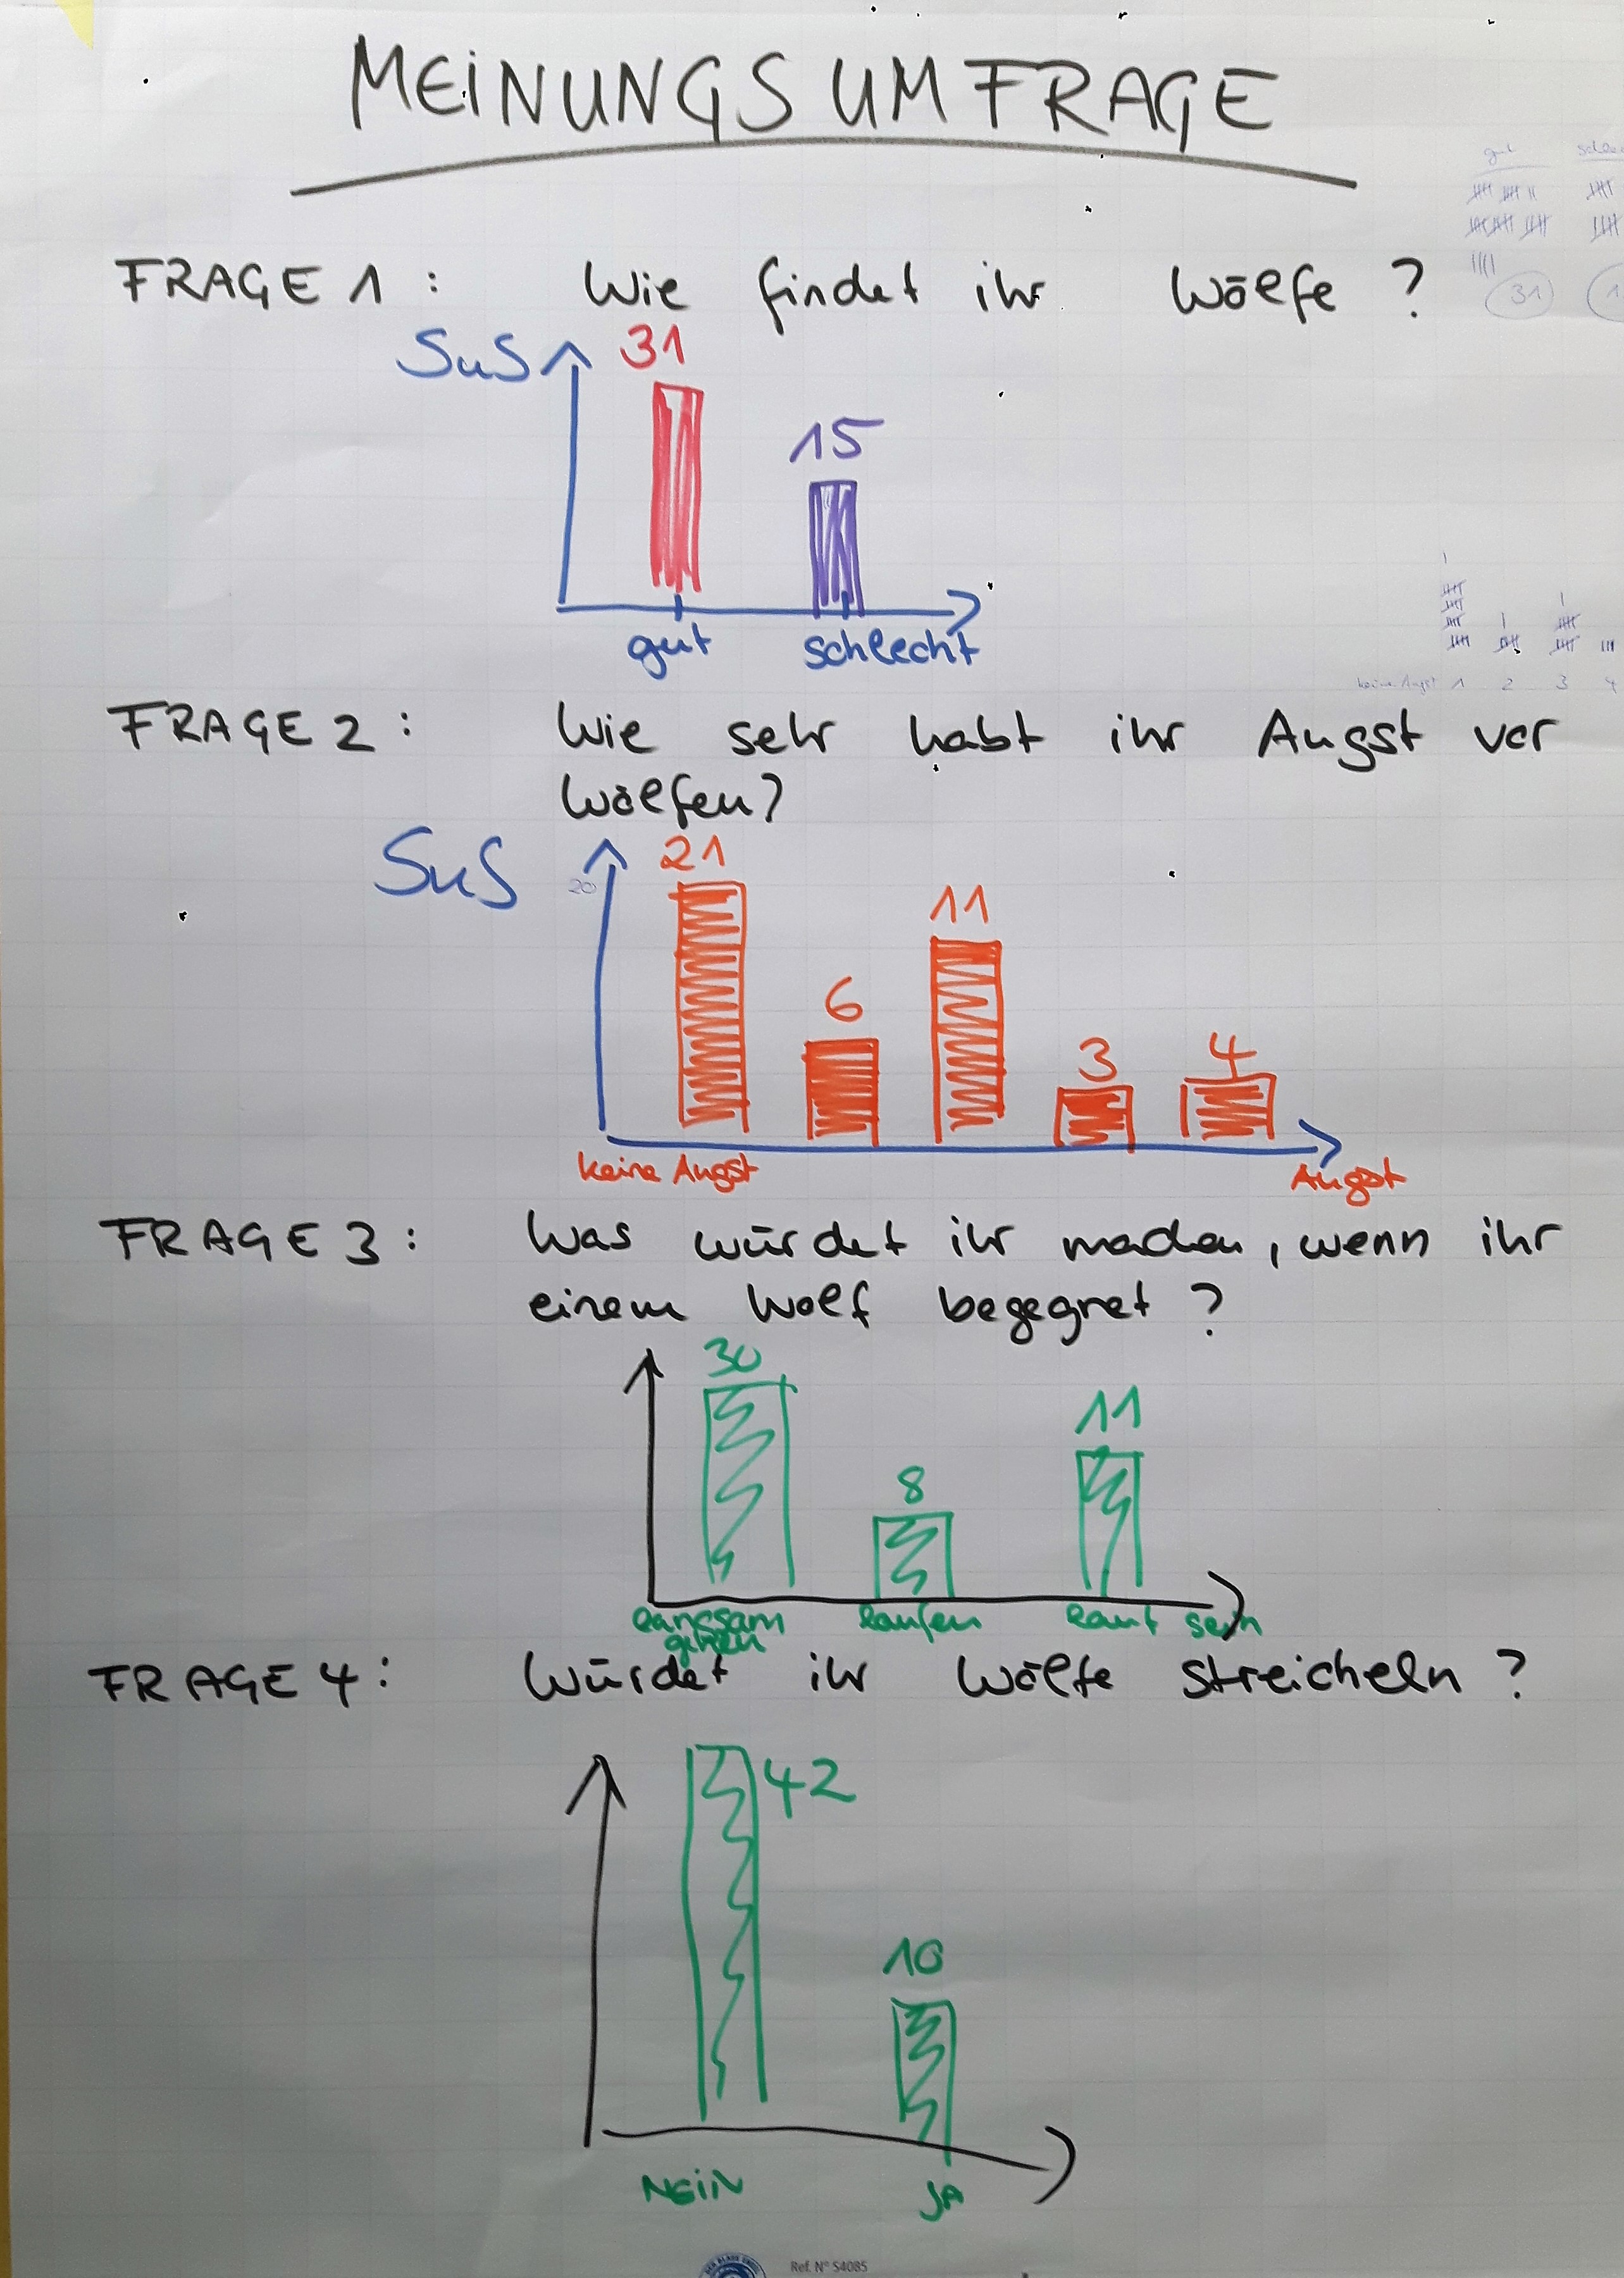 MEINUNGSUMFRAGE
gut
31
FRAGE 1: Wie findet ihr Wölfe?
SuS
31
15
gut schlecht
keine Angst 1 2 3 4
FRAGE 2: Wie sehr habt ihr Angst vor
Wölfen?
SuS
20
21
6
11
3
4
keine Angst Angst
FRAGE 3: Was würdet ihr machen, wenn ihr
einem Wolf begegnet?
30
8
11
langsam gehen laufen laut sein
FRAGE 4: Würdet ihr Wölfe streicheln?
42
10
NEiN JA
Ref. N° S4085